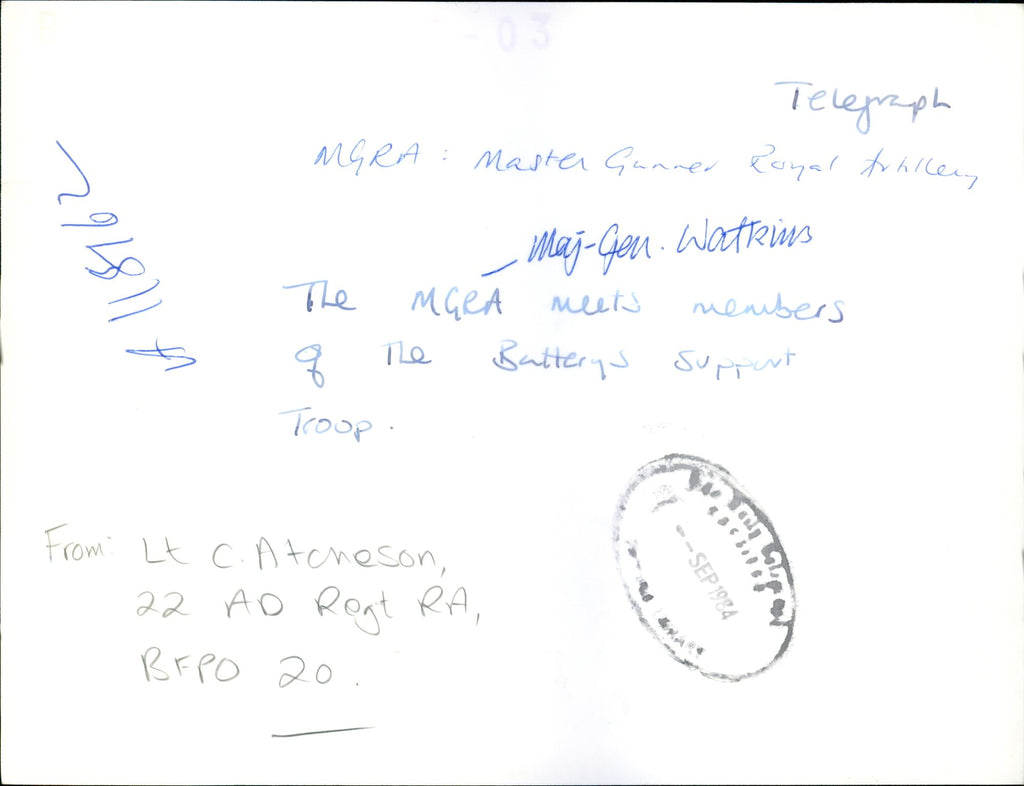 03
Telegraph
MGRA: Master Gunner Royal Artillery
Maj-Gen. Watkins
The MGRA meets members
of the Batterys support
Troop.
-- SEP 1984
From: Lt C. Atcheson,
22 AD Regt RA,
BFPO 20.